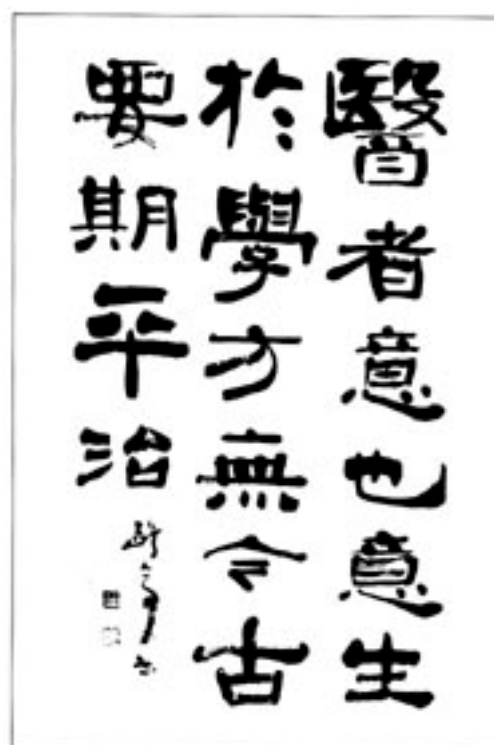 醫者意也意生
於學方無今古
要期平治